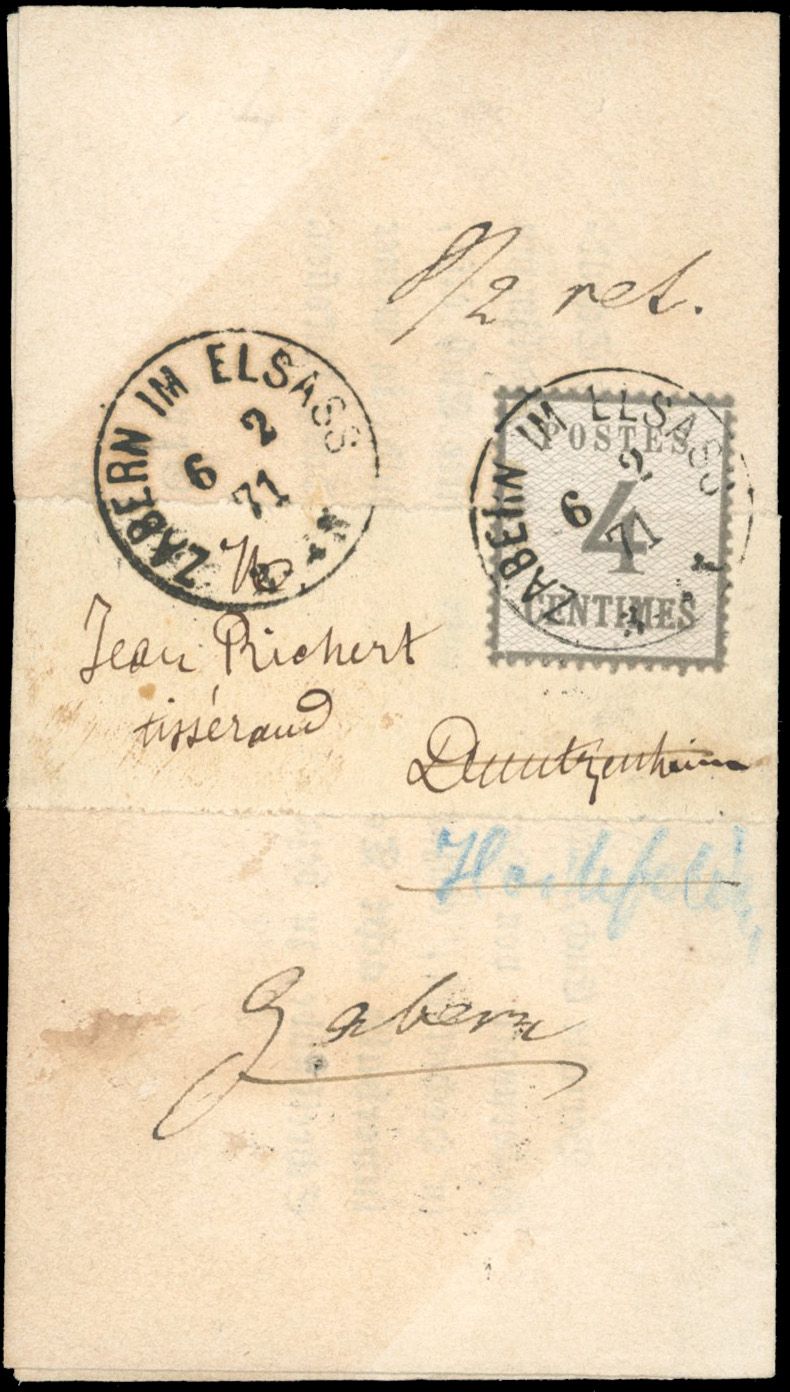 8/2 ret.
ZABERN IM ELSASS
6 2
71
POSTES
4
CENTIMES
ZABERN IM ELSASS
6 2
71
Jean Richert
tisserand
Duntzenheim
Hochfelden
Zabern